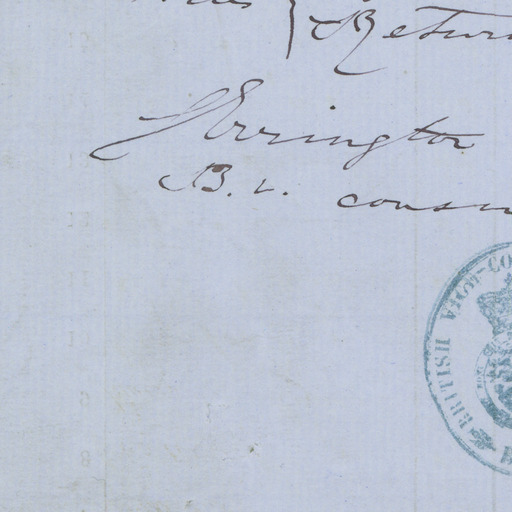 Return
J Errington
B. V. consu
BRITISH VICE-CO